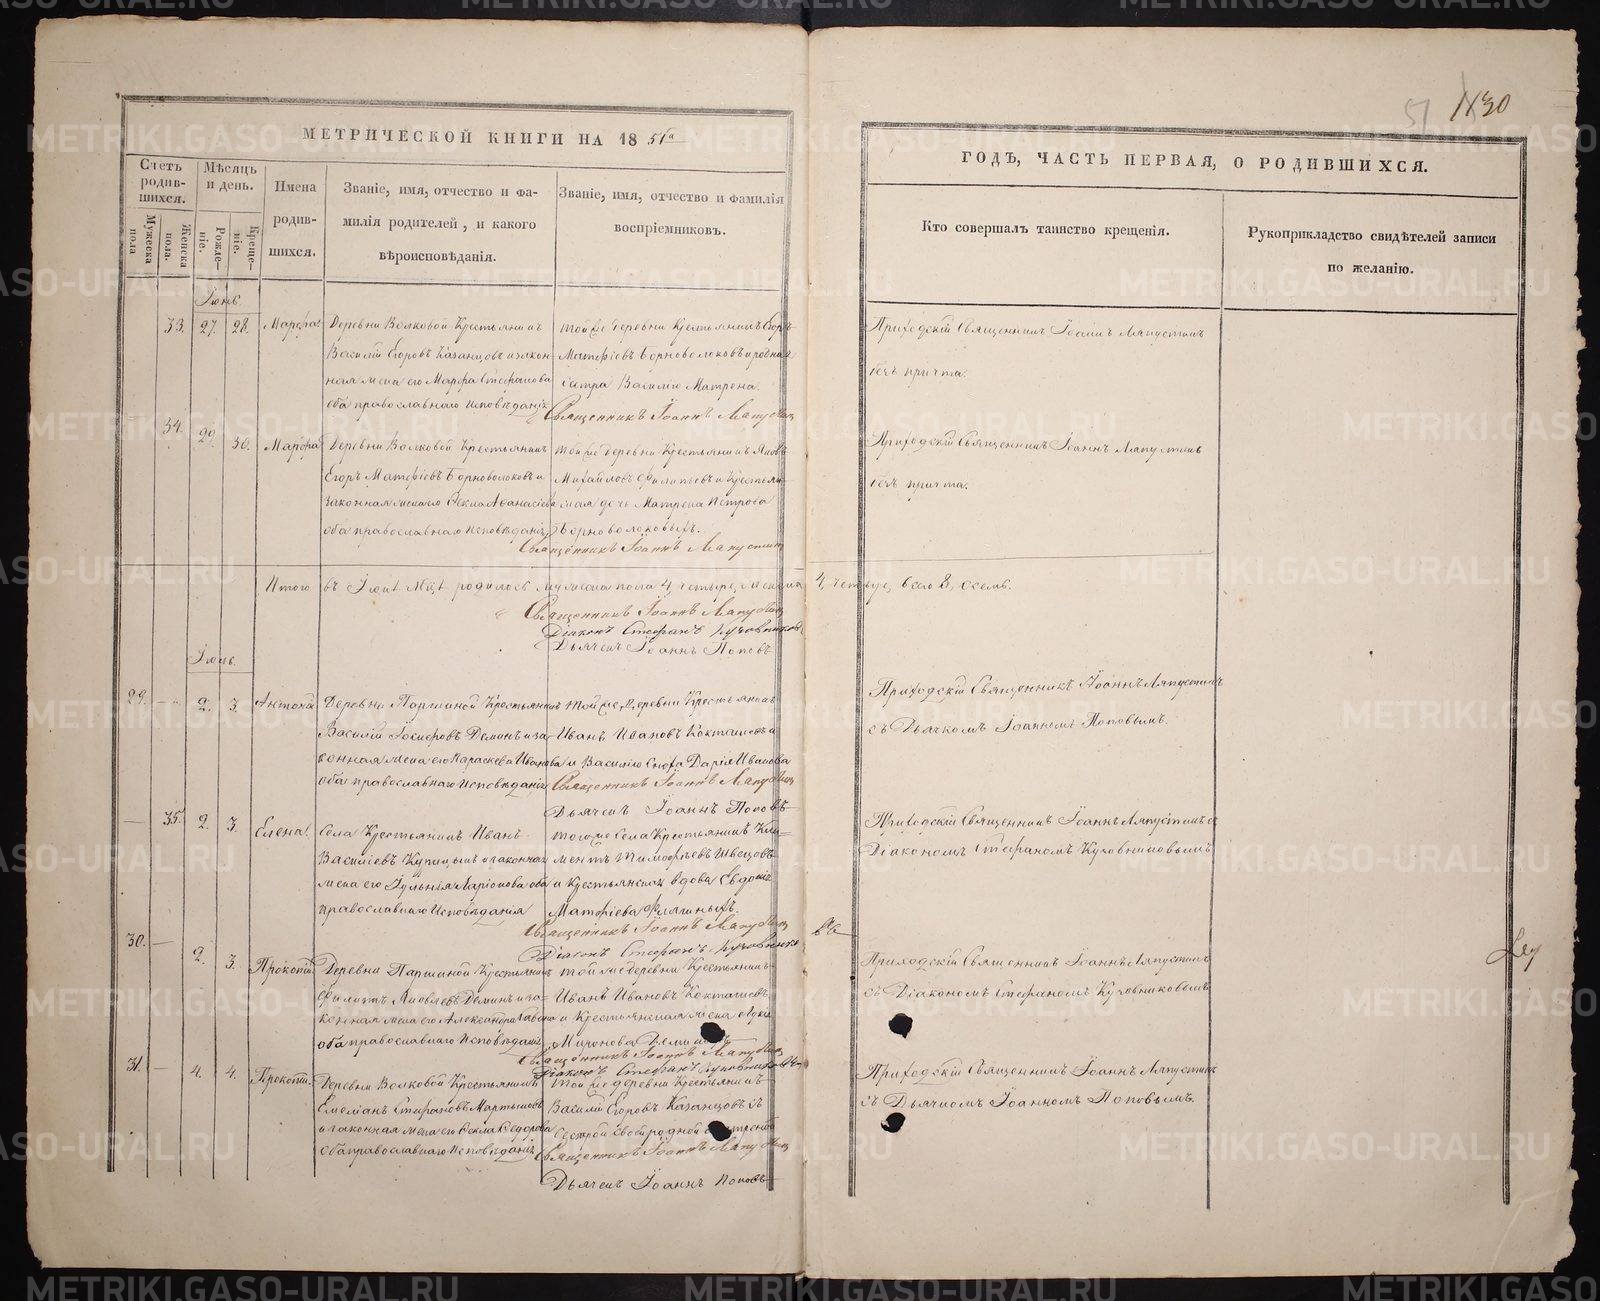 51 1130
МЕТРИЧЕСКОЙ КНИГИ НА 1851го
ГОДЪ, ЧАСТЬ ПЕРВАЯ, О РОДИВШИХСЯ.
Счетъ родив-шихся.
Мужеска пола
Женска пола.
Мѣсяцъ и день.
Рожде-ніе.
Креще-ніе.
Имена родив-шихся.
Званіе, имя, отчество и фа-
милія родителей, и какого
вѣроисповѣданія.
Званіе, имя, отчество и фамилія
воспріемниковъ.
Кто совершалъ таинство крещенія.
Рукоприкладство свидѣтелей записи
по желанію.
Іюнь.
33. 27. 28. Марфа.
Деревни Волковой Крестьянинъ
Василій Егоровъ Казанцовъ и закон-
ная жена его Марфа Стефанова
оба православнаго исповѣданія
Той же деревни Крестьянинъ Егоръ
Матфіевъ Борноволоковъ и родная
сестра Василію Матрена.
Священникъ Іоаннъ Ляпустинъ
Приходскій Священникъ Іоаннъ Ляпустинъ
безъ причта.
34. 29. 30. Марфа
Деревни Волковой Крестьянинъ
Егоръ Матфіевъ Борноволоковъ и
законная жена его Фекла Афанасіева
оба православнаго исповѣданія
Той же деревни Крестьянинъ Яковъ
Михайловъ Филипьевъ и Крестьян-
ская дочь Матрена Петрова
Борноволоковыхъ.
Священникъ Іоаннъ Ляпустинъ
Приходскій Священникъ Іоаннъ Ляпустинъ
безъ причта.
Итого въ Іюнѣ м-цѣ родилось мужеска пола 4, четыре, женска 4, четыре, всего 8, осемь.
Священникъ Іоаннъ Ляпустинъ
Діаконъ Стефанъ Кузовниковъ
Дьячекъ Іоаннъ Поповъ
Іюль.
29. — 2. 3. Антоній
Деревни Паршиной Крестьянинъ
Василій Іосифовъ Деминъ и за-
конная жена его Параскева Иванова
оба православнаго исповѣданія
Той же деревни Крестьянинъ
Иванъ Ивановъ Кокташевъ
и Василію сноха Дарія Иванова
Священникъ Іоаннъ Ляпустинъ
Дьячекъ Іоаннъ Поповъ
Приходскій Священникъ Іоаннъ Ляпустинъ
съ Дьячкомъ Іоанномъ Поповымъ.
— 35. 2. 3. Елена.
Села Крестьянинъ Иванъ
Василіевъ Купицынъ и законная
жена его Іульянія Ларіонова оба
православнаго исповѣданія
Того же села Крестьянинъ Кли-
ментъ Тимофѣевъ Швецовъ
и Крестьянская вдова Евдокія
Матфіева
Священникъ Іоаннъ Ляпустинъ
Діаконъ Стефанъ Кузовниковъ
Приходскій Священникъ Іоаннъ Ляпустинъ съ
Діакономъ Стефаномъ Кузовниковымъ
30. — 2. 3. Прокопій
Деревни Паршиной Крестьянинъ
Филиппъ Яковлевъ Деминъ и за-
конная жена его Александра
оба православнаго исповѣданія
Той же деревни Крестьянинъ
Иванъ Ивановъ Кокташевъ
и Крестьянская жена
Миронова Демина
Священникъ Іоаннъ Ляпустинъ
Діаконъ Стефанъ Кузовниковъ
Приходскій Священникъ Іоаннъ Ляпустинъ
съ Діакономъ Стефаномъ Кузовниковымъ
31. — 4. 4. Прокопій.
Деревни Волковой Крестьянинъ
Емеліанъ Стефановъ Мартышевъ
и законная жена его Фекла Федорова
оба православнаго исповѣданія
Той же деревни Крестьянинъ
Василій Егоровъ Казанцовъ съ
сестрой своей родной Матреной
Священникъ Іоаннъ Ляпустинъ
Дьячекъ Іоаннъ Поповъ
Приходскій Священникъ Іоаннъ Ляпустинъ
съ Дьячкомъ Іоанномъ Поповымъ.
METRIKI.GASO-URAL.RU